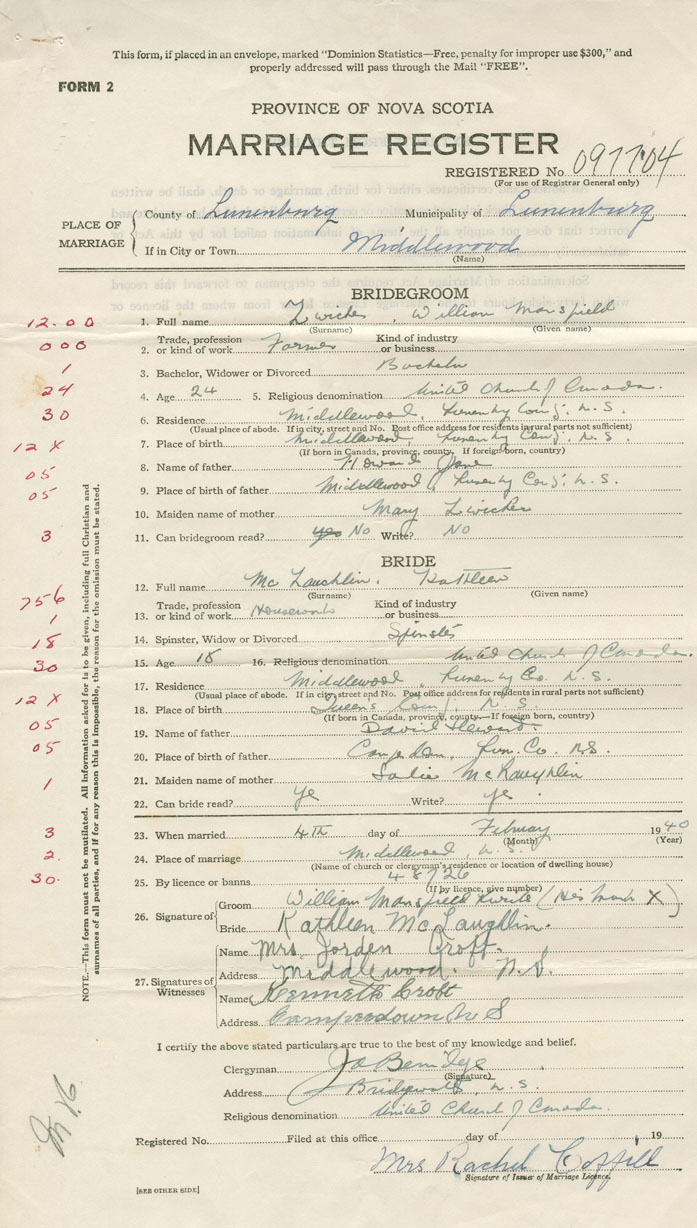 This form, if placed in an envelope, marked "Dominion Statistics—Free, penalty for improper use $300," and
properly addressed will pass through the Mail "FREE".
FORM 2
PROVINCE OF NOVA SCOTIA
MARRIAGE REGISTER
REGISTERED No. 097704
(For use of Registrar General only)
PLACE OF MARRIAGE
County of Lunenburg Municipality of Lunenburg
If in City or Town Middlewood
(Name)
BRIDEGROOM
12.00 1. Full name Zwicker, William Mansfield
(Surname) (Given name)
000 2. Trade, profession or kind of work Farmer Kind of industry or business
1 3. Bachelor, Widower or Divorced Bachelor
24 4. Age 24 5. Religious denomination United Church of Canada.
30 6. Residence Middlewood, N.S.
(Usual place of abode. If in city, street and No. Post office address for residents in rural parts not sufficient)
12 X 7. Place of birth Middlewood, N.S.
(If born in Canada, province, county. If foreign born, country)
05 8. Name of father Howard
05 9. Place of birth of father Middlewood, N.S.
10. Maiden name of mother Mary Zwicker
3 11. Can bridegroom read? yes No Write? No
BRIDE
12. Full name Mc Laughlin, Kathleen
(Surname) (Given name)
756 Trade, profession Kind of industry
1 13. or kind of work Housework or business
14. Spinster, Widow or Divorced Spinster
18 15. Age 18 16. Religious denomination United Church of Canada.
30 17. Residence Middlewood, Co. N.S.
(Usual place of abode. If in city, street and No. Post office address for residents in rural parts not sufficient)
12 X 18. Place of birth Queens N.S.
(If born in Canada, province, county—If foreign born, country)
05 19. Name of father David
05 20. Place of birth of father Lun. Co. N.S.
1 21. Maiden name of mother Sadie McLaughlin
22. Can bride read? ye Write? ye
3 23. When married 4TH day of February 1940
(Month) (Year)
2. 24. Place of marriage Middlewood, N.S.
(Name of church or clergyman's residence or location of dwelling house)
30. 25. By licence or banns 48726
(If by licence, give number)
26. Signature of
Groom William Mansfield (His Mark X)
Bride Kathleen McLaughlin.
27. Signatures of Witnesses
Name Mrs. Jorden Croft.
Address Middlewood. N.S.
Name Kenneth Croft
Address Camperdown N S
I certify the above stated particulars are true to the best of my knowledge and belief.
Clergyman
(Signature)
Address N.S.
Religious denomination United Church of Canada.
Registered No. Filed at this office day of 19
Mrs Rachel Coffill
Signature of Issuer of Marriage Licence.
[SEE OTHER SIDE]
NOTE.—This form must not be mutilated. All information asked for is to be given, including full Christian and
surnames of all parties, and if for any reason this is impossible, the reason for the omission must be stated.